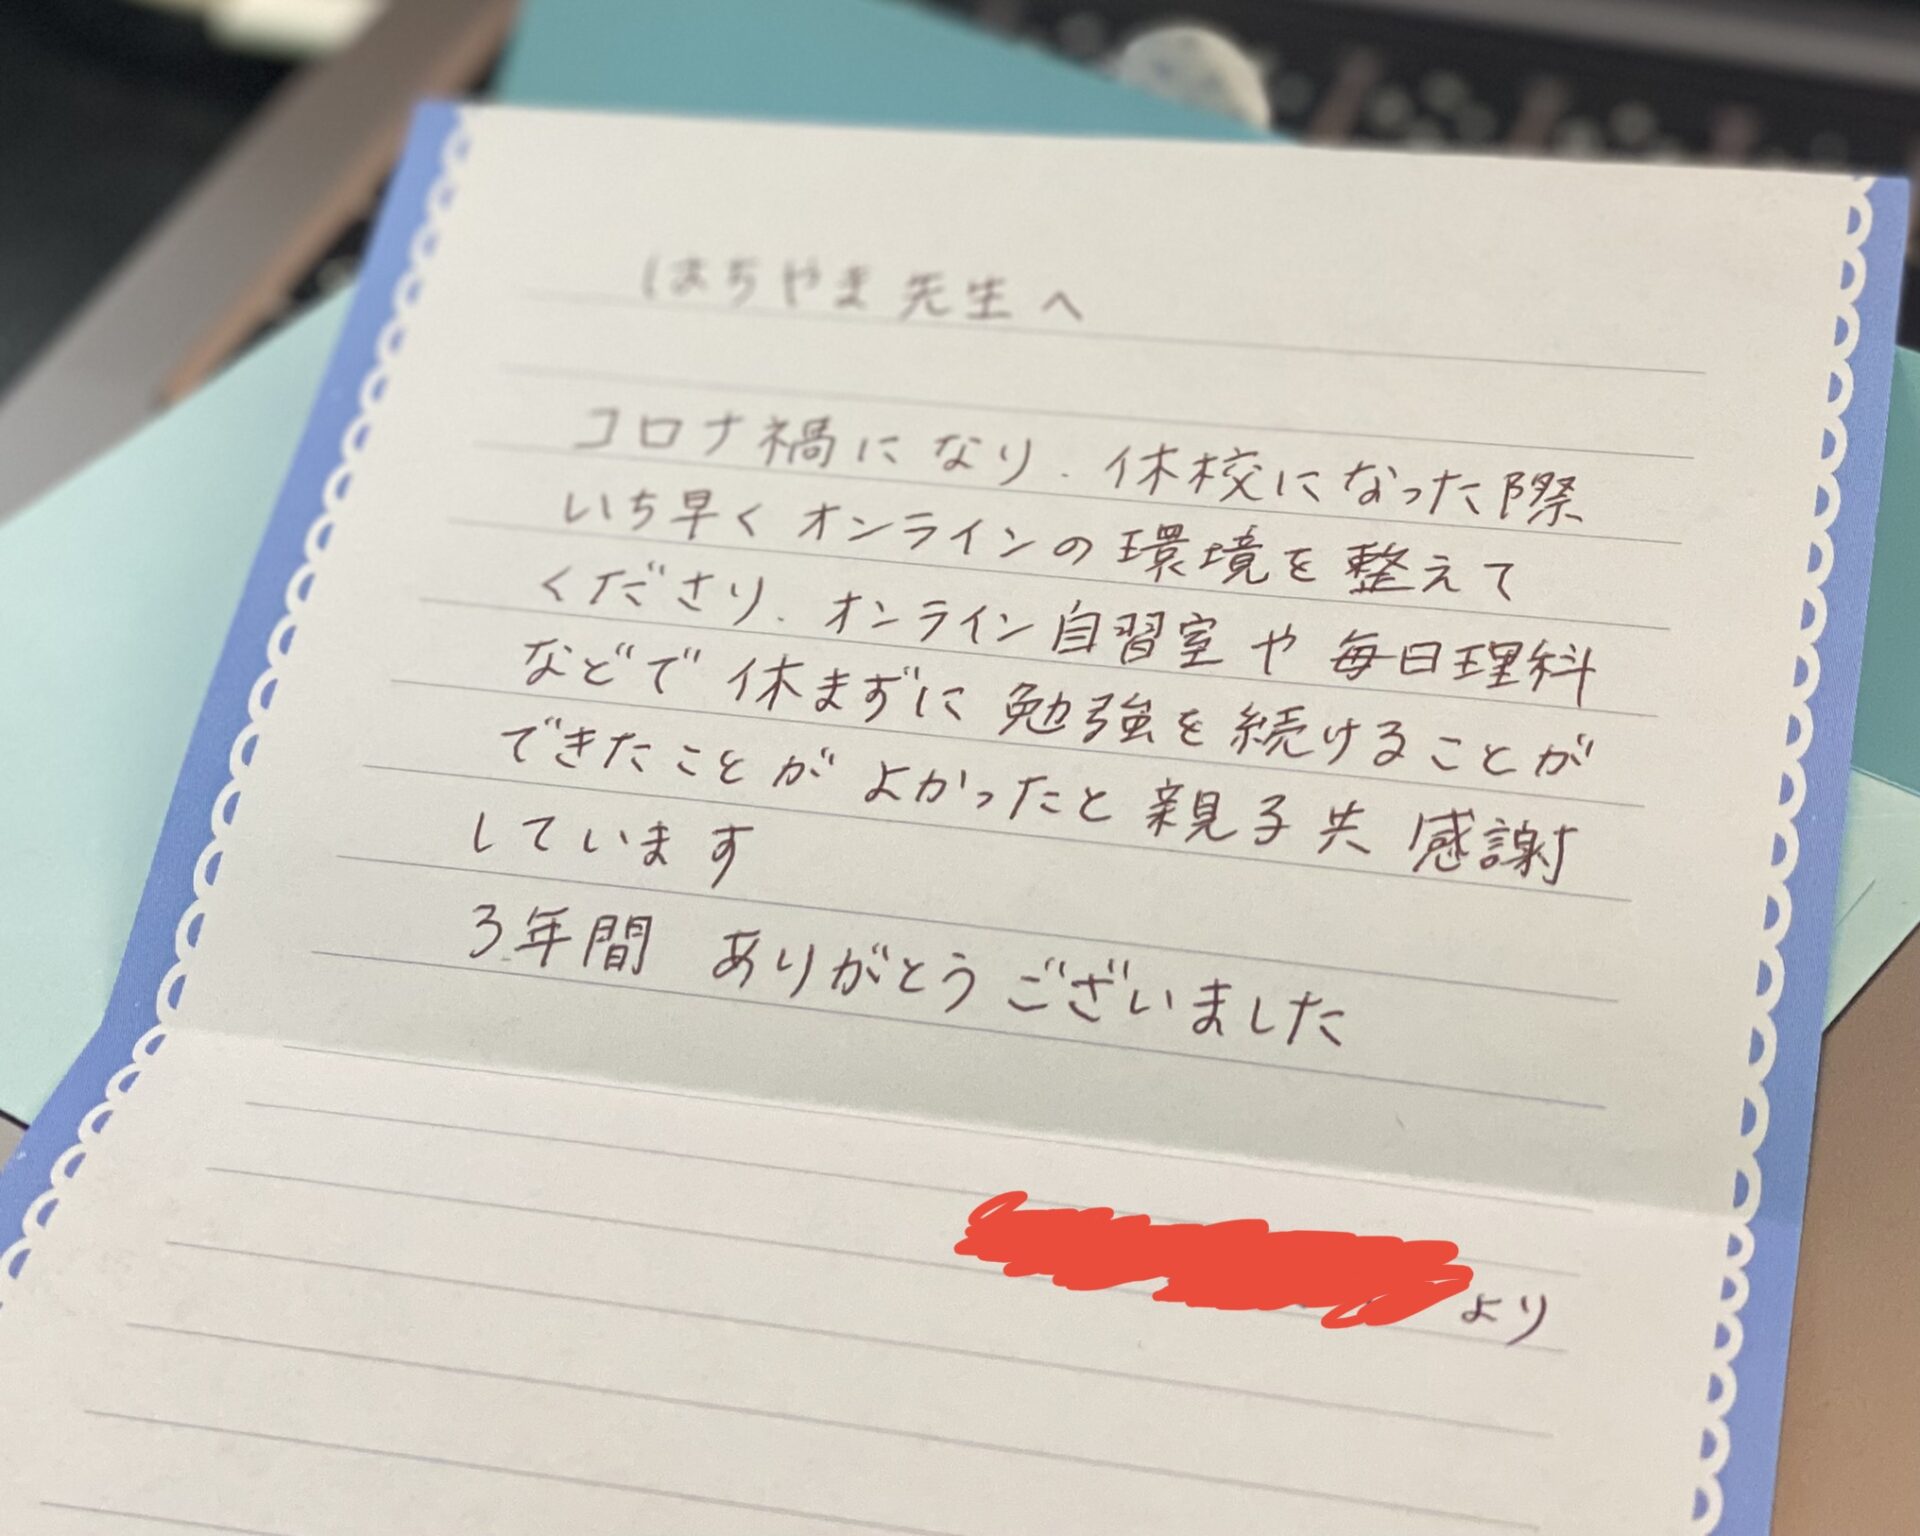 はちやま先生へ
コロナ禍になり、休校になった際
いち早くオンラインの環境を整えて
くださり、オンライン自習室や毎日理科
などで休まずに勉強を続けることが
できたことがよかったと親子共感謝
しています
3年間 ありがとうございました
より